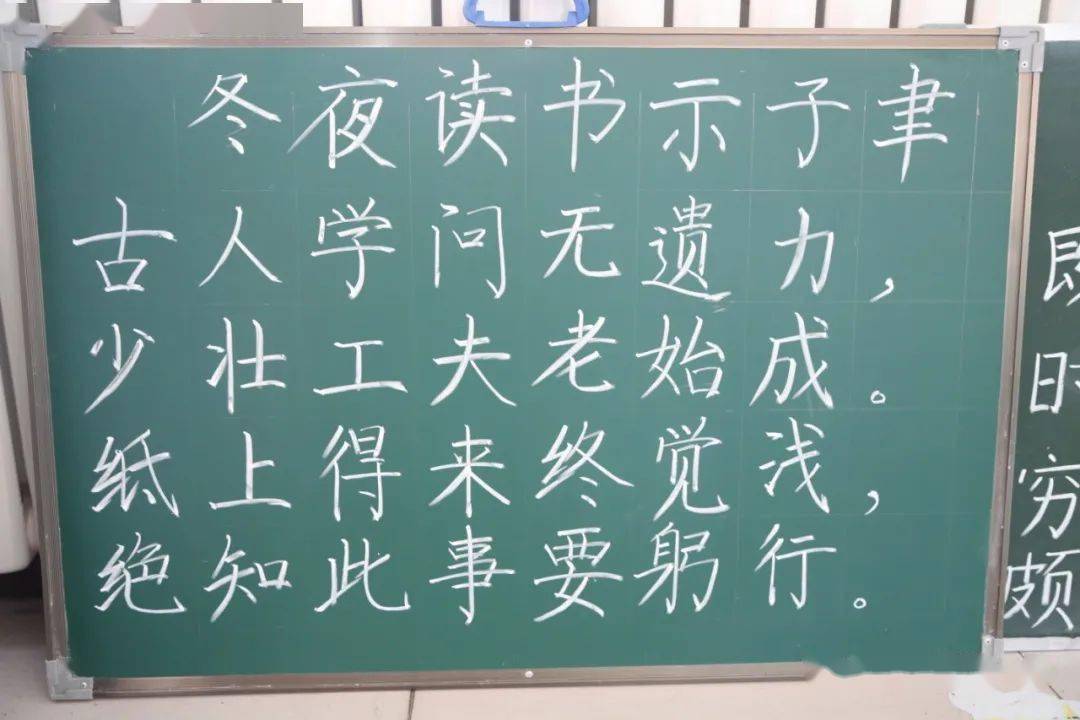 冬夜读书示子聿
古人学问无遗力，
少壮工夫老始成。
纸上得来终觉浅，
绝知此事要躬行。
即
时
穷
颇